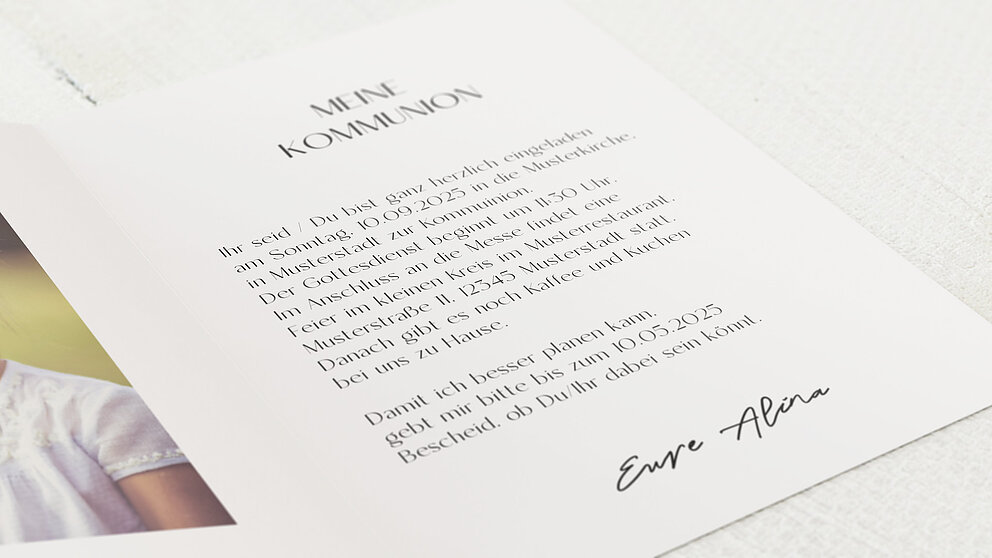 MEINE
KOMMUNION
Ihr seid / Du bist ganz herzlich eingeladen
am Sonntag, 10.09.2025 in die Musterkirche,
in Musterstadt zur Kommuinion.
Der Gottesdienst beginnt um 11:30 Uhr.
Im Anschluss an die Messe findet eine
Feier im kleinen Kreis im Musterrestaurant,
Musterstraße 11, 12345 Musterstadt statt.
Danach gibt es noch Kaffee und Kuchen
bei uns zu Hause.
Damit ich besser planen kann,
gebt mir bitte bis zum 10.05.2025
Bescheid, ob Du/Ihr dabei sein könnt.
Eure Alina